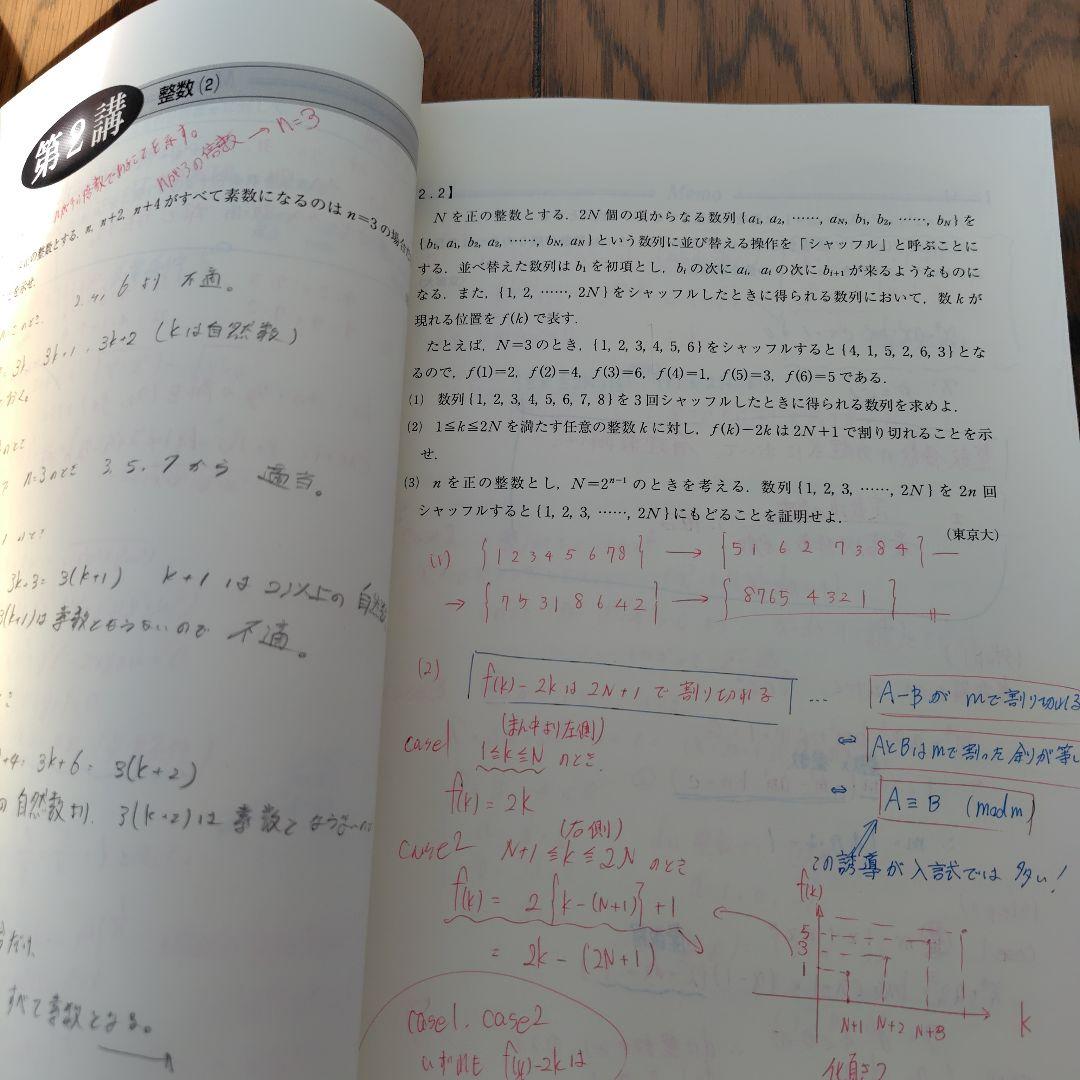 第2講
整数(2)
nが3の倍数 → n=3
の整数とする. n, n+2, n+4がすべて素数になるのは n=3の場合
を示せ.
2, 4, 6 より 不適。
3k, 3k+1, 3k+2 (kは自然数)
n=3のとき 3, 5, 7 から 適当。
3k+3 = 3(k+1) k+1 は 2以上の 自然数
3(k+1)は素数となりえないので 不適。
+4 = 3k+6 = 3(k+2)
の 自然数より. 3(k+2)は 素数と
すべて素数となる。
2.2】
Nを正の整数とする. 2N 個の項からなる数列{a₁, a₂, ……, a_N, b₁, b₂, ……, b_N}を
{b₁, a₁, b₂, a₂, ……, b_N, a_N}という数列に並び替える操作を「シャッフル」と呼ぶことに
する. 並べ替えた数列は b₁を初項とし, b_iの次に a_i, a_iの次に b_{i+1}が来るようなものに
なる. また, {1, 2, ……, 2N}をシャッフルしたときに得られる数列において, 数 k が
現れる位置を f(k) で表す.
たとえば, N=3のとき, {1, 2, 3, 4, 5, 6}をシャッフルすると{4, 1, 5, 2, 6, 3}とな
るので, f(1)=2, f(2)=4, f(3)=6, f(4)=1, f(5)=3, f(6)=5である.
(1) 数列{1, 2, 3, 4, 5, 6, 7, 8}を3回シャッフルしたときに得られる数列を求めよ.
(2) 1≦k≦2Nを満たす任意の整数kに対し, f(k)−2kは2N+1で割り切れることを示
せ.
(3) nを正の整数とし, N=2ⁿ⁻¹のときを考える. 数列{1, 2, 3, ……, 2N}を2n回
シャッフルすると{1, 2, 3, ……, 2N}にもどることを証明せよ.
(東京大)
(1) {1 2 3 4 5 6 7 8} → {5 1 6 2 7 3 8 4}
→ {7 5 3 1 8 6 4 2} → {8 7 6 5 4 3 2 1}
(2) f(k)−2kは 2N+1で 割り切れる … A−Bが mで割り切れる
(まん中より左側)
case1 1≦k≦N のとき. ⇔ AとBはmで割った余りが等し
f(k) = 2k ⇔ A≡B (mod m)
(右側)
case2 N+1≦k≦2N のとき この誘導が入試では多い!
f(k) = 2{k−(N+1)}+1
= 2k−(2N+1)
f(k)
5
3
1
N+1 N+2 N+3 k
case1. case2
いずれも f(k)−2kは
傾き2